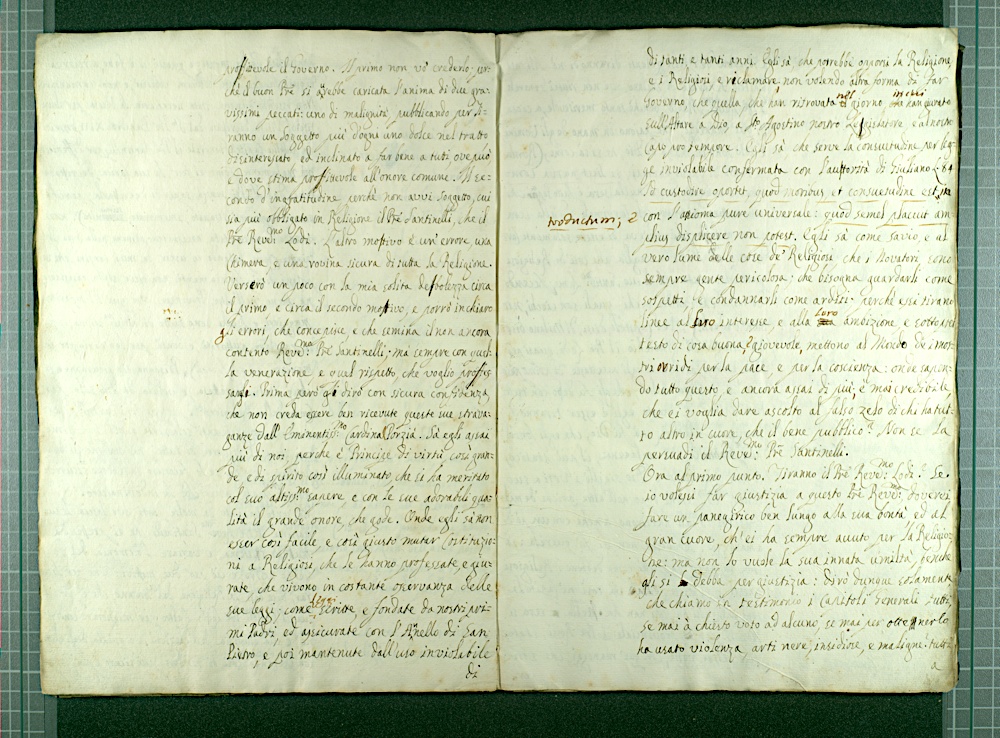 profittevole il Governo. Il primo non vò crederlo; per-
che il buon Pre si avebbe caricata l'anima di due gra-
vissimi peccati: uno di malignità, pubblicando per ti-
ranno un soggetto più d'ogni uno dolce nel tratto
disinteressato ed inclinato a far bene a tuti ove può
e dove stima profittevole all'onore comune. Il se-
condo d'ingratitudine perchè non avvi soggetto, cui
sia più obbligato in Religione il Pre Santinelli, che il
Pre Revmo Lodi. L'altro mottivo è un'errore, una
Chimera, e una rovina sicura di tutta la Religione.
Verserò un poco con la mia solita debolezza circa
il primo e circa il secondo mottivo, e porrò in chiaro
gl'errori, che concepisce e che semina il non ancora
contento Revmo Pre Santinelli; ma sempre con quel-
la venerazione e quel rispetto che voglio profes-
sargli. Prima però gli dirò con sicura confidenza,
che non creda essere ben ricevute queste sue strava-
ganze dall'Eminentissmo Cardinal Porzia. Sà egli assai
più di noi perche è Principe di virtù così gran-
de e di spirito così illuminato che si ha meritato
col suo altissmo sapere, e con le sue adorabili qua-
lità il grande onore, che gode. Onde egli sà non
esser così facile, e così giusto mutar Costituzio-
ni a Religiosi, che le hanno professate, e giu-
rate, che vivono in costante osservanza delle
sue leggi; come leggi scritte e fondate da nostri pri-
mi Padri, ed assicurate con l'Anello di San
Pietro, e poi mantenute dall'uso inviolabile
di
di tanti, e tanti anni. Egli sà che potrebbe opporsi la Religione
e i Religiosi, e reclamare, non volendo altra forma di far
Governo, che quella che han ritrovata nel giorno in cui han giurato
sull'Altare a Dio, a Sto Agostino nostro Legislatore e al nostro
Capo pro tempore. Egli sà che serve la consuetudine per leg-
ge inviolabile confermata con l'auttorità di Giuliano L. 64
Id custodire oportet, quod moribus et consuetudine est in-
troductum; e
con l'assioma pure universale: quod semel placuit am-
plius displicere non potest. Egli sà come savio, e al
vero lume delle cose de Religiosi che i Novatori sono
sempre gente pericolosa; che bisogna guardarli come
sospetti e condannarli come arditi: perchè essi tirano
linee al loro interesse, e alla loro ambizione, e sotto pre-
testo di cosa buona, e giovevole, mettono al Mondo de i mos-
tri orridi per la pace, e per la coscienza: onde sapen-
do tutto questo e ancora assai di più, è mai credibile,
che ei voglia dare ascolto al falso zelo di chi ha tut-
to altro in cuor, che il bene pubblico? Non se la
persuadi il Revmo Pre Santinelli.
Ora al primo punto. Tiranno il Pre Revmo Lodi? Se
io volessi far giustizia a questo Pre Revmo doverei
fare un panegirico ben lungo alla sua bontà ed al
gran Cuore, ch'ei ha sempre avuto per la Religio-
ne: ma non lo vuole la sua innata umiltà, benchè
gli si debba per giustizia: Dirò dunque solamente
che chiamo in testimonio i Capitoli Generali tutti,
se mai à chiesto voto ad alcuno, se mai per ottenerlo
ha usato violenza, arti nere, insidiose, e maligne. tutt-
a